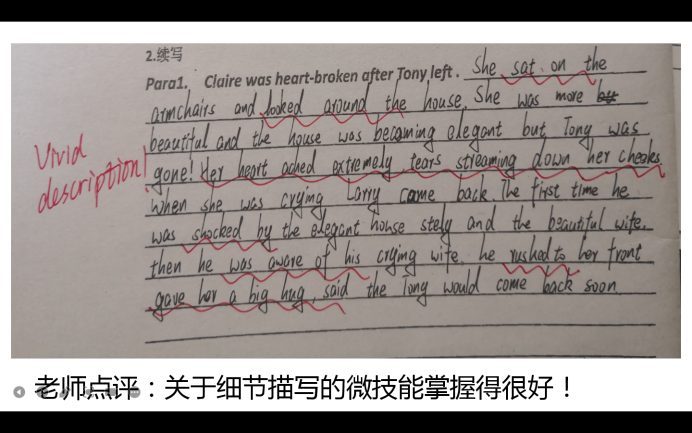 2.续写
Para1. Claire was heart-broken after Tony left. She sat on the
armchairs and looked around the house. She was more
beautiful and the house was becoming elegant but Tong was
gone! Her heart ached extremely, tears streaming down her cheeks.
When she was crying Larry came back. The first time he
was shocked by the elegant house stely and the beautiful wife.
then he was aware of his crying wife. he rushed to her front
gave her a big hug, said the Tong would come back soon
Vivid
description!
老师点评：关于细节描写的微技能掌握得很好！